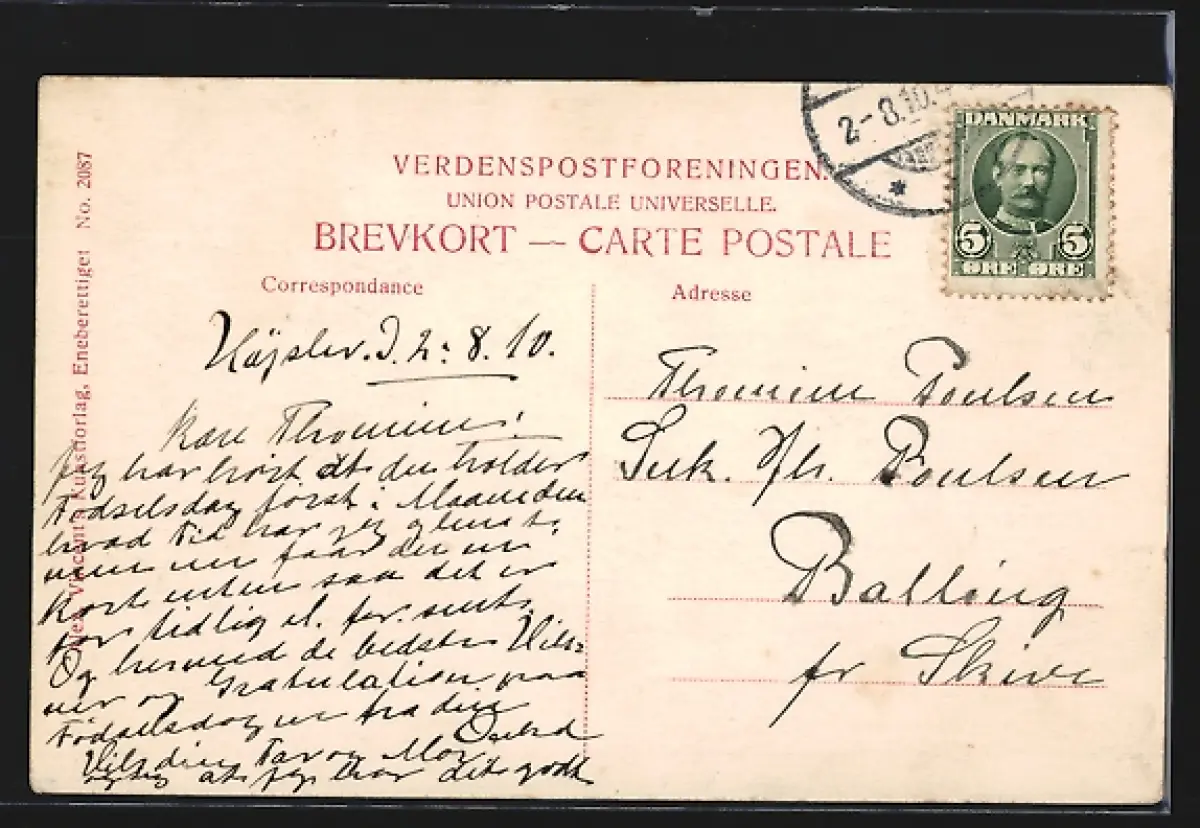 VERDENSPOSTFORENINGEN.
UNION POSTALE UNIVERSELLE.
BREVKORT — CARTE POSTALE
Correspondance
Adresse
Vincent's Kunstforlag, Eneberettiget No. 2087
2-8.10.
DANMARK
5 5
ØRE ØRE
Højslev. 2:8.10.
Kære Thomine!
Jeg har hørt at du holder
Fødselsdag først i Maaneden
hvad Tid har jeg glemt,
men nu faar du en
Kort enten saa det er
for tidlig el. for sent,
Og hermed de bedste Hils-
ner og Gratulation paa
Fødselsdagen fra din
Hils din Far og Mor
at jeg har det godt
Thomine Poulsen
Poulsen
Balling
pr Skive